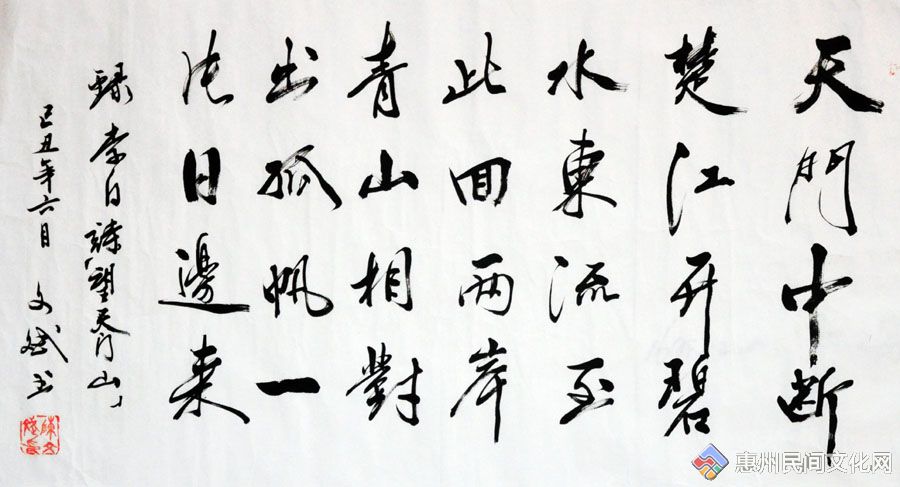 天門中断
楚江开碧
水東流至
此回兩岸
青山相對
出孤帆一
片日邊来
録李白詩「望天门山」
己丑年六月 文斌书
惠州民间文化网